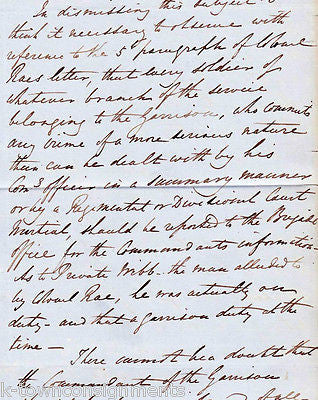 In dismissing this subject I
think it necessary to observe with
reference to the 5th paragraph of Colonel
Raes letter, that every soldier of
whatever branch of the service
belonging to the Garrison, who commits
any crime of a more serious nature
than can be dealt with by his
Comg officer in a summary manner
or by a Regimental or Divisional Court
Martial, should be reported to the Brigade
office for the Commandants information.
As to Private Webb the man alluded to
by Colonel Rae, he was actually on
duty - and that a garrison duty at the
time —
There cannot be a doubt that
the Commandant of the Garrison
k-townconsignments